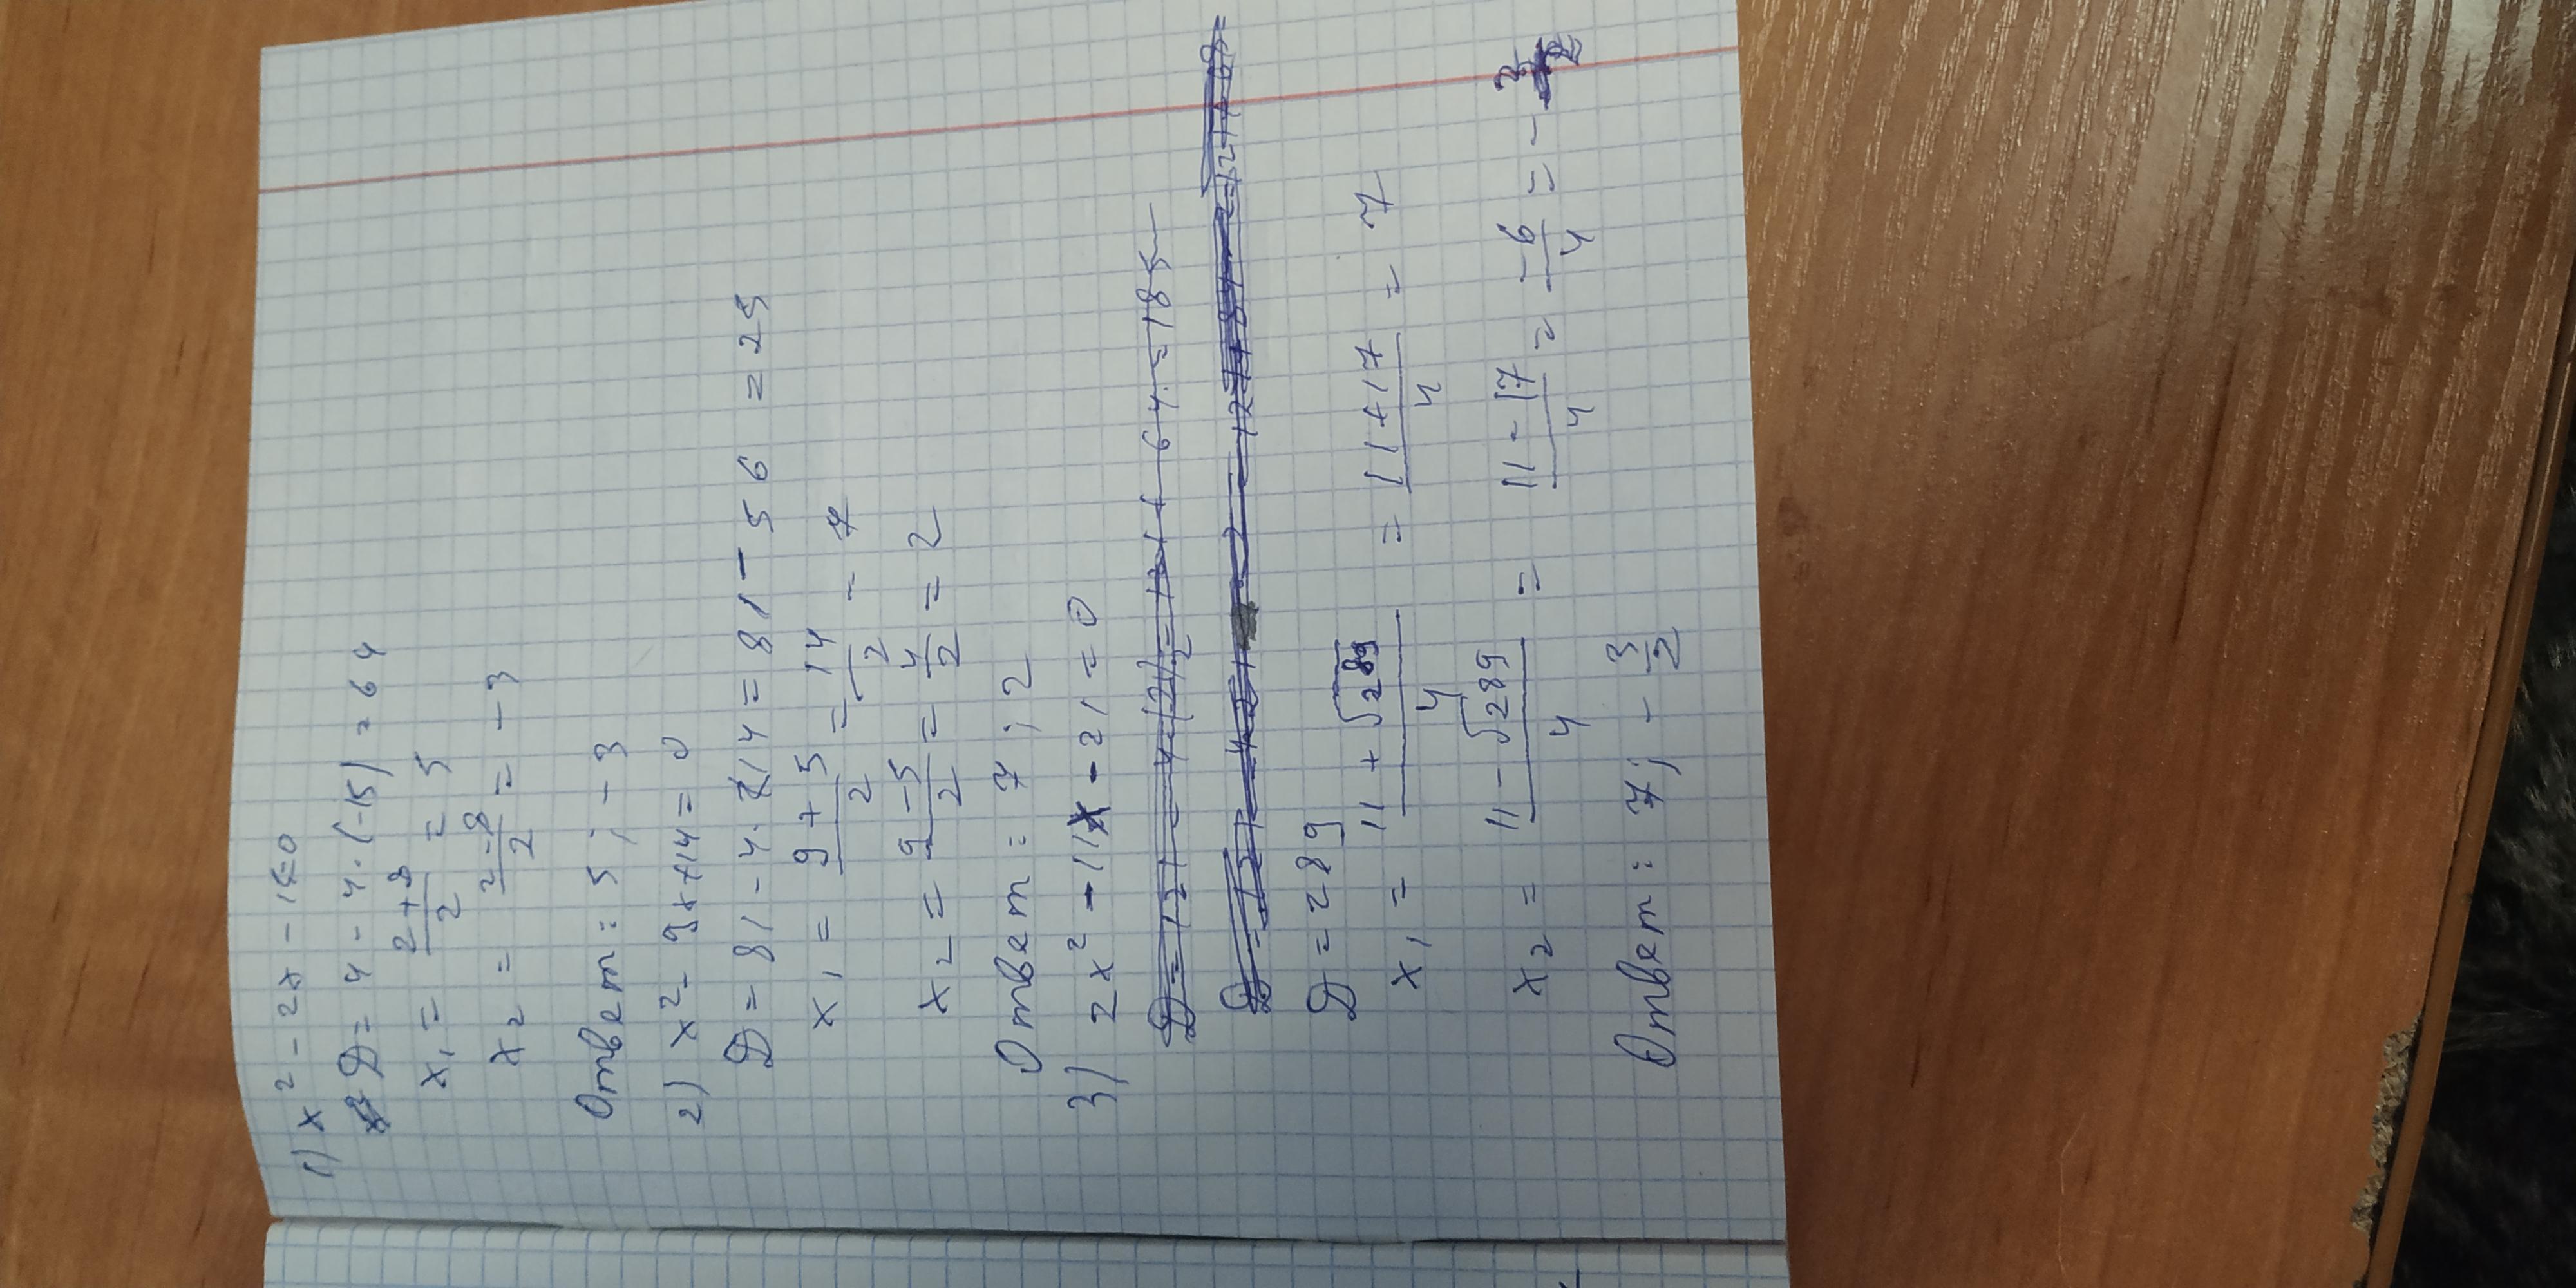 1) x² - 2x - 15=0
D = 4 - 4·(-15) = 64
x₁ = (2+8)/2 = 5
x₂ = (2-8)/2 = -3
Ответ: 5 ; -3
2) x² - 9x+14=0
D = 81 - 4·14 = 81 - 56 = 25
x₁ = (9+5)/2 = 14/2 - 7
x₂ = (9-5)/2 = 4/2 = 2
Ответ: 7 ; 2
3) 2x² - 11x - 21 = 0
D = 289
x₁ = (11 + √289)/4 = (11+17)/4 = 7
x₂ = (11 - √289)/4 = (11-17)/4 = -6/4 = -3/2
Ответ: 7; - 3/2